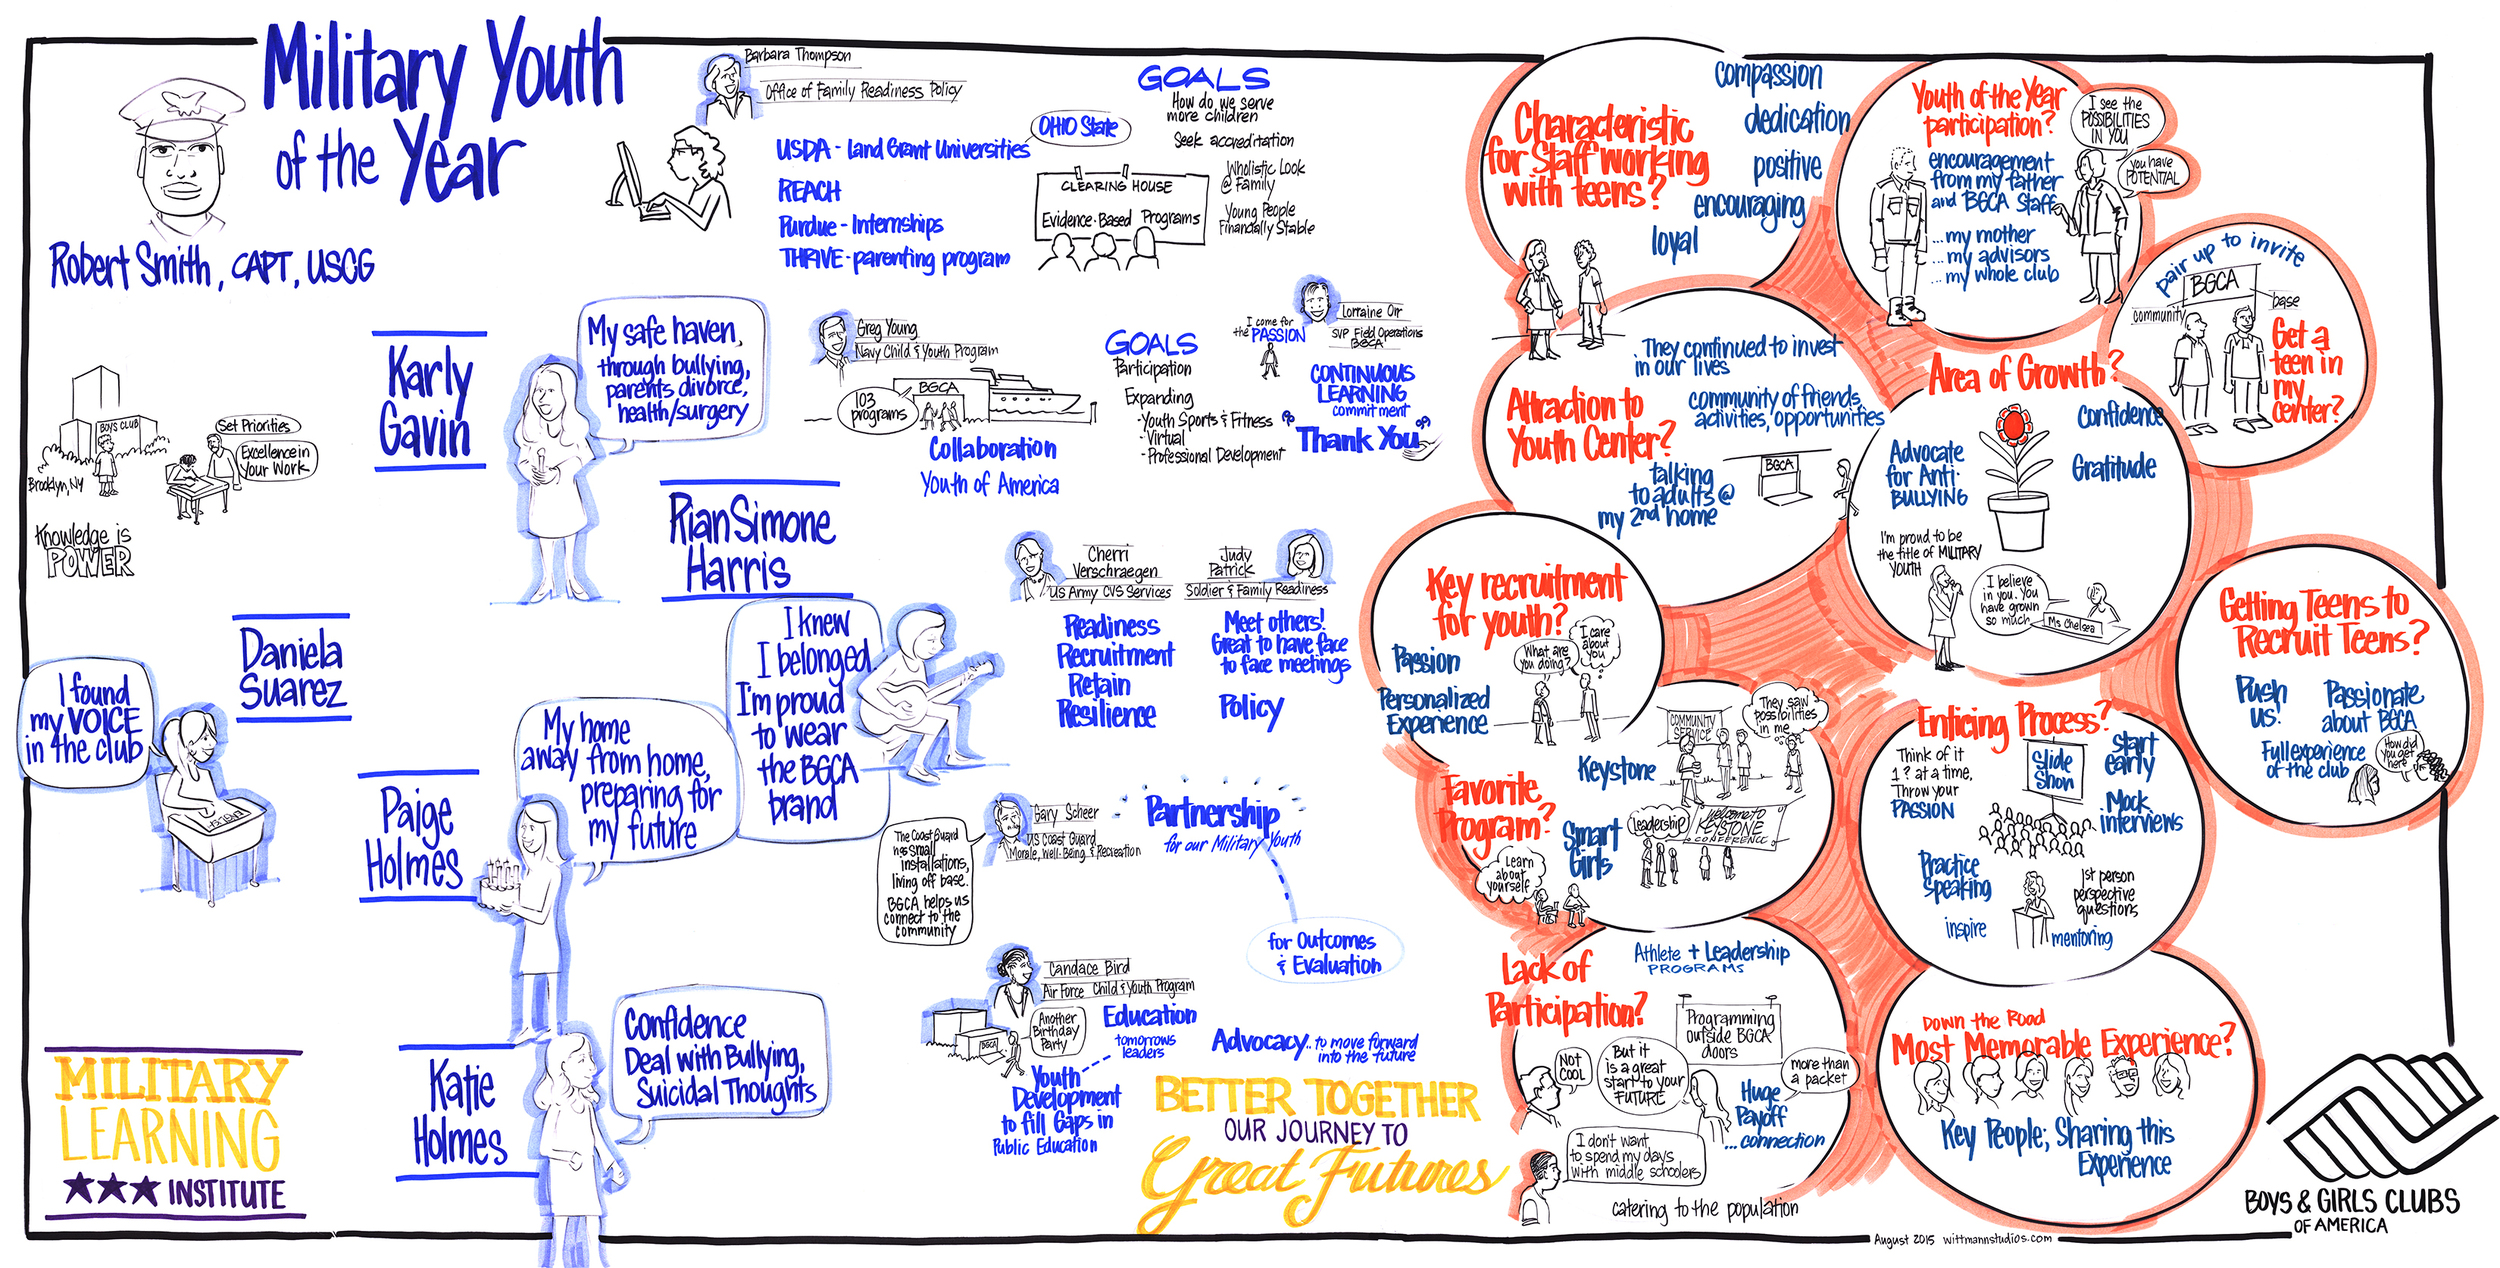 Military Youth
of the Year
Robert Smith, CAPT, USCG
BOYS CLUB
Brooklyn, NY
Set Priorities
Excellence in
Your Work
Knowledge is
POWER
Karly
Gavin
My safe haven,
through bullying,
parents divorce,
health/surgery
RianSimone
Harris
I knew
I belonged.
I'm proud
to wear
the BGCA
brand
Daniela
Suarez
I found
my VOICE
in the club
Paige
Holmes
My home
away from home,
preparing for
my future
Katie
Holmes
Confidence
Deal with Bullying,
Suicidal Thoughts
MILITARY
LEARNING
INSTITUTE
Barbara Thompson
Office of Family Readiness Policy
USDA - Land Grant Universities
OHIO State
REACH
Purdue - Internships
THRIVE - parenting program
CLEARING HOUSE
Evidence-Based Programs
GOALS
How do we serve
more children
Seek accreditation
Wholistic Look
@ Family
Young People
Financially Stable
Greg Young
Navy Child & Youth Program
103
programs
BGCA
Collaboration
Youth of America
GOALS
Participation
Expanding
- Youth Sports & Fitness
- Virtual
- Professional Development
I come for
the PASSION
Lorraine Orr
SVP Field Operations
BGCA
CONTINUOUS
LEARNING
commitment
Thank You
Cherri
Verschraegen
US Army CYS Services
Readiness
Recruitment
Retain
Resilience
Judy
Patrick
Soldier & Family Readiness
Meet others!
Great to have face
to face meetings
Policy
Gary Scheer
US Coast Guard
Morale, Well-Being & Recreation
The Coast Guard
has small
installations,
living off base.
BGCA helps us
connect to the
community
Partnership
for our Military Youth
for Outcomes
& Evaluation
Candace Bird
Air Force Child & Youth Program
BGCA
Another
Birthday
Party
Education
tomorrows
leaders
Youth
Development
to fill Gaps in
Public Education
Advocacy.. to move forward
into the future
BETTER TOGETHER
OUR JOURNEY TO
Great Futures
Characteristic
for Staff working
with teens?
compassion
dedication
positive
encouraging
loyal
Youth of the Year
participation?
encouragement
from my father
and BGCA Staff
...my mother
...my advisors
...my whole club
I see the
POSSIBILITIES
IN YOU
You have
POTENTIAL
pair up to invite
BGCA
community
base
Get a
teen in
my
center?
Attraction to
Youth Center?
They continued to invest
in our lives
community of friends,
activities, opportunities
talking
to adults @
my 2nd home
BGCA
Area of Growth?
Confidence
Advocate
for Anti-
BULLYING
Gratitude
I'm proud to be
the title of MILITARY
YOUTH
I believe
in you. You
have grown
so much
Ms Chelsea
Key recruitment
for youth?
Passion
Personalized
Experience
What are
you doing?
I care
about
you
Getting Teens to
Recruit Teens?
Push
us!
Passionate
about BGCA
Full experience
of the club
How did
you get
here
Favorite
Program?
Keystone
Smart
Girls
COMMUNITY
SERVICE
They saw
possibilities
in me
Leadership
Welcome to
KEYSTONE
CONFERENCE
Learn
about
yourself
Enticing Process?
Think of it
1 ? at a time,
Throw your
PASSION
Slide
Show
start
early
Mock
interviews
Practice
speaking
inspire
1st person
perspective
questions
mentoring
Lack of
Participation?
Athlete + Leadership
PROGRAMS
Programming
outside BGCA
doors
NOT
COOL
But it
is a great
start to your
FUTURE
more than
a packet
Huge
Payoff
...connection
I don't want
to spend my days
with middle schoolers
catering to the population
Down the Road
Most Memorable Experience?
Key People, Sharing this
Experience
BOYS & GIRLS CLUBS
OF AMERICA
August 2015 wittmannstudios.com